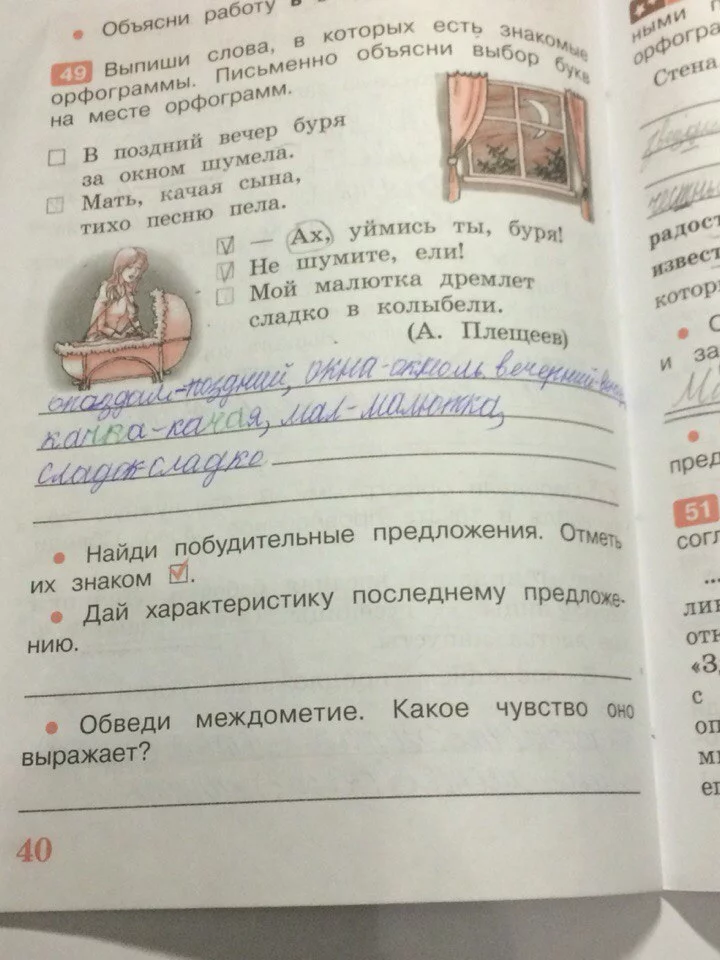 • Объясни работу в
49 Выпиши слова, в которых есть знакомые
орфограммы. Письменно объясни выбор букв
на месте орфограмм.
В поздний вечер буря
за окном шумела.
Мать, качая сына,
тихо песню пела.
— Ах, уймись ты, буря!
Не шумите, ели!
Мой малютка дремлет
сладко в колыбели.
(А. Плещеев)
опаздал-поздний, окна-окном, вечерний-
качка-качая, мал-малютка,
сладок сладко
• Найди побудительные предложения. Отметь
их знаком ☑.
• Дай характеристику последнему предложе-
нию.
• Обведи междометие. Какое чувство оно
выражает?
40
ными
орфогра
Стена
радост
извест
которы
• С
и за
•
пред
51
согл
...
лин
отн
«З
с
оп
мн
ег